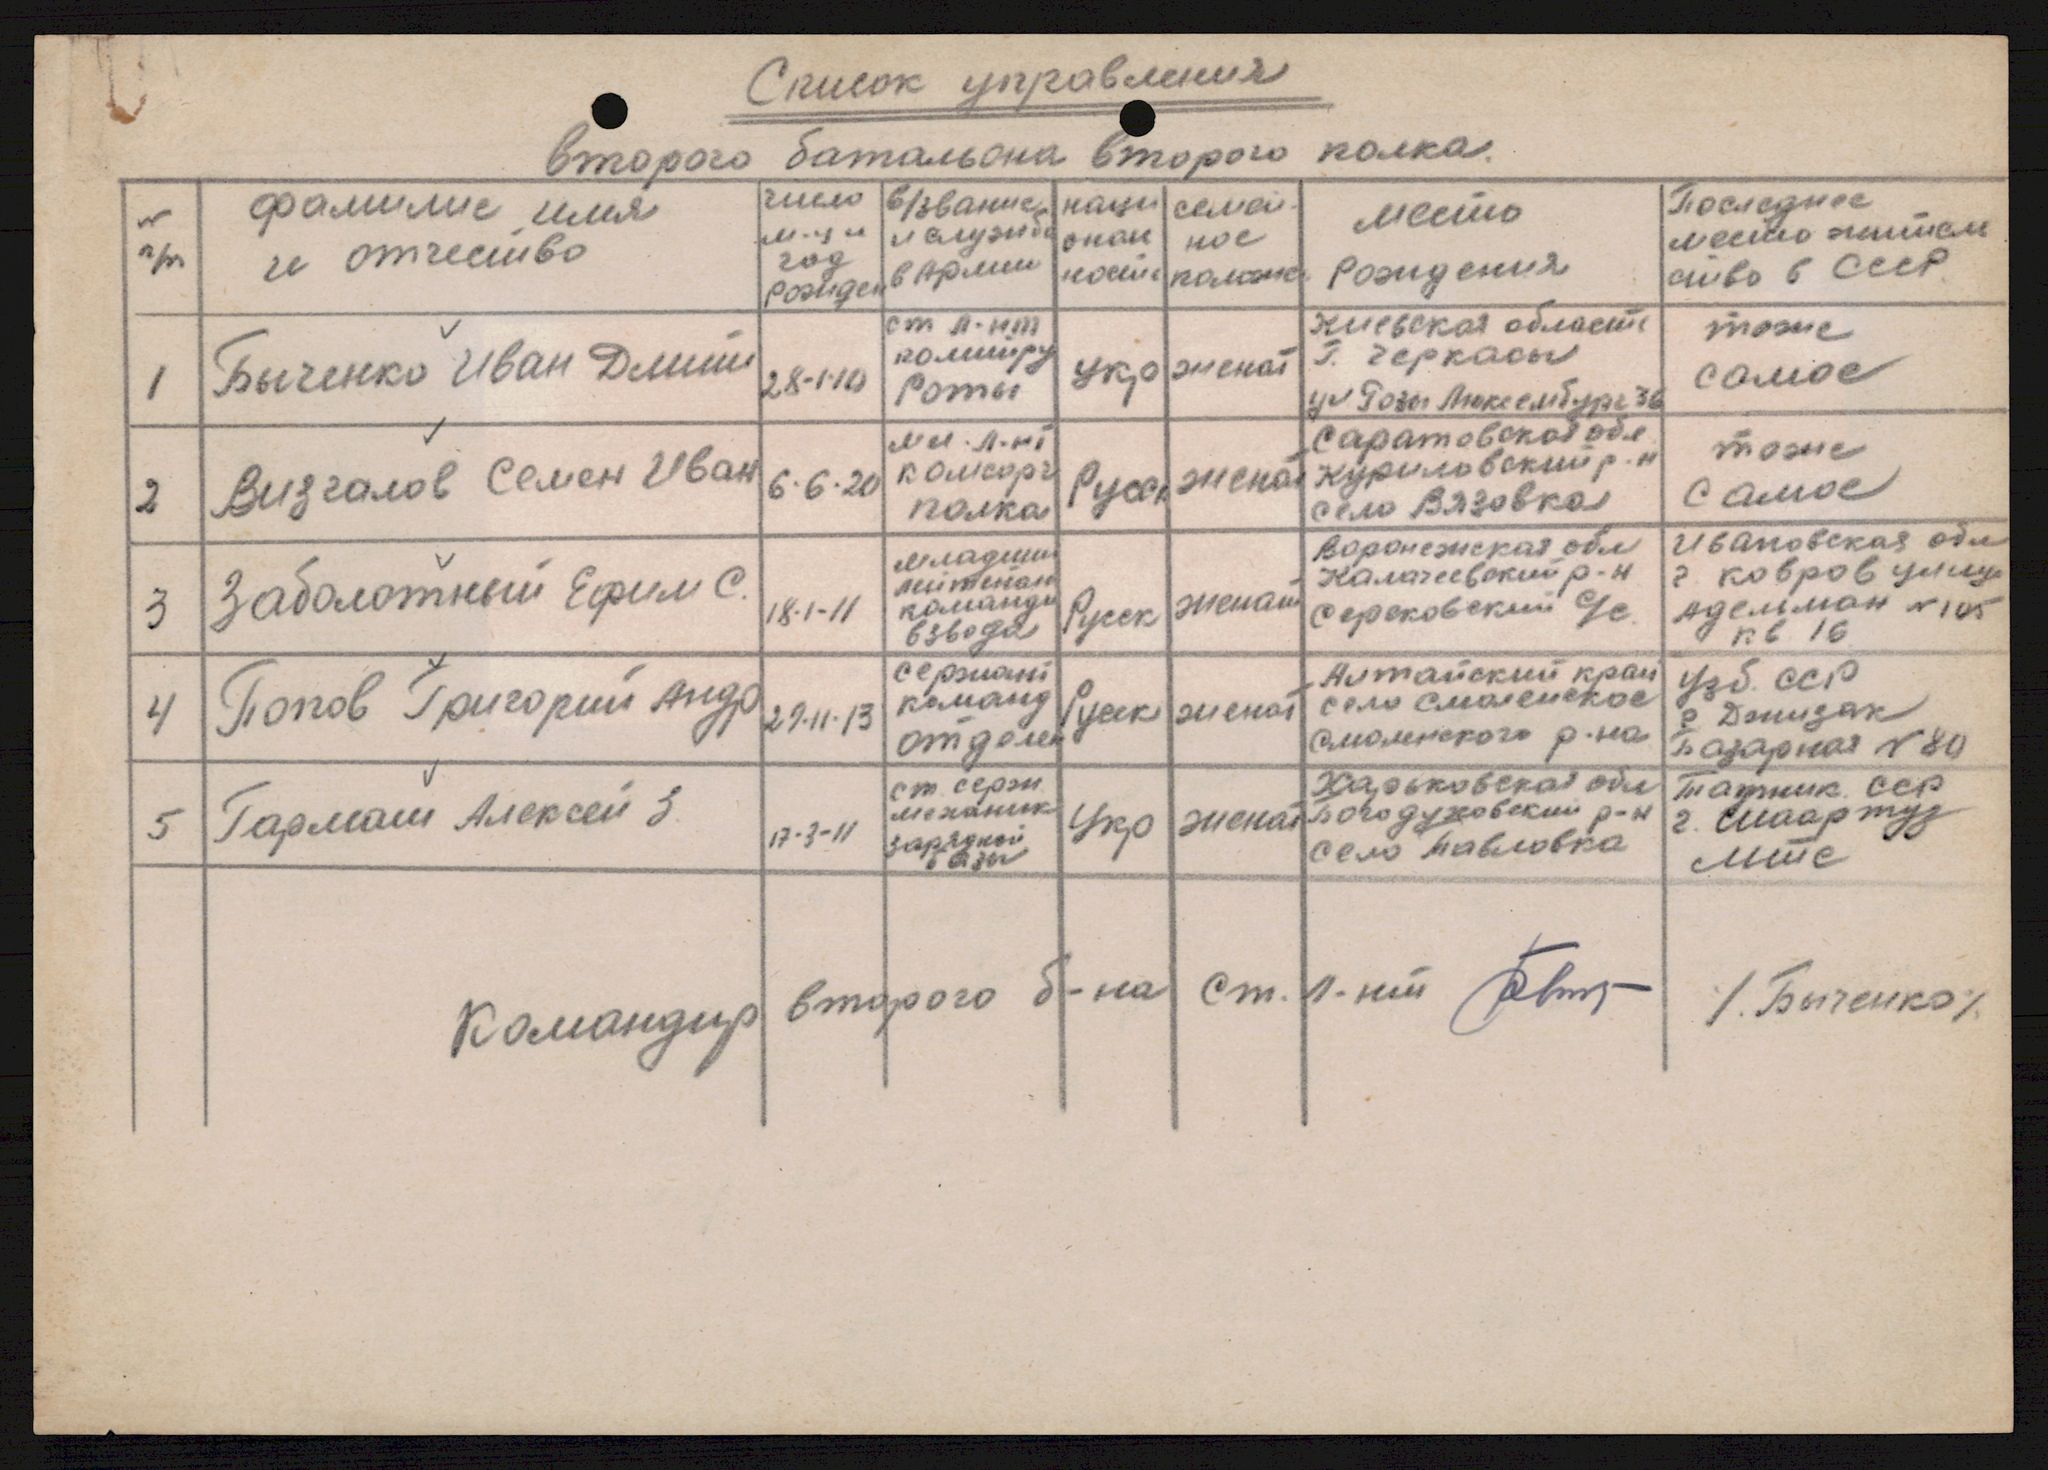 Список управления
второго батальона второго полка.
№ п/п
фамилие имя и отчество
число м-ц и год рожден
в/звание и служба в Армии
наци онал ность
семей- ное полож
место Рождения
Последнее место житель ство в СССР
1
Быченко Иван Дмит
28-1-10
ст л-нт политру Роты
укр
женат
Киевская область г. Черкасы ул Розы Люксембург 36
тоже самое
2
Визгалов Семен Иван
6-6-20
мл. л-нт комсорг полка
Русск
женат
Саратовская обл Куриловский р-н село Вязовка
тоже самое
3
Заболотный Ефим С.
18-1-11
младший лейтенан команди взвода
Русск
женат
Воронежская обл Калачеевский р-н Серековский С/с.
Ивановская обл г. Ковров улиц Адельман № 105 кв 16
4
Попов Григорий Андр
27-11-13
сержант команд отделен
Русск
женат
Алтайский край село Смоленское Смоленского р-на
Узб. ССР г Джизак Базарная № 80
5
Гармаш Алексей З.
17-3-11
ст. серж. механик зарядной базы
Укр
женат
Харьковская обл Богодуховский р-н село Павловка
Таджик. ССР г. Шаартуз МТС
Командир второго б-на ст. л-нт /. Быченко /.